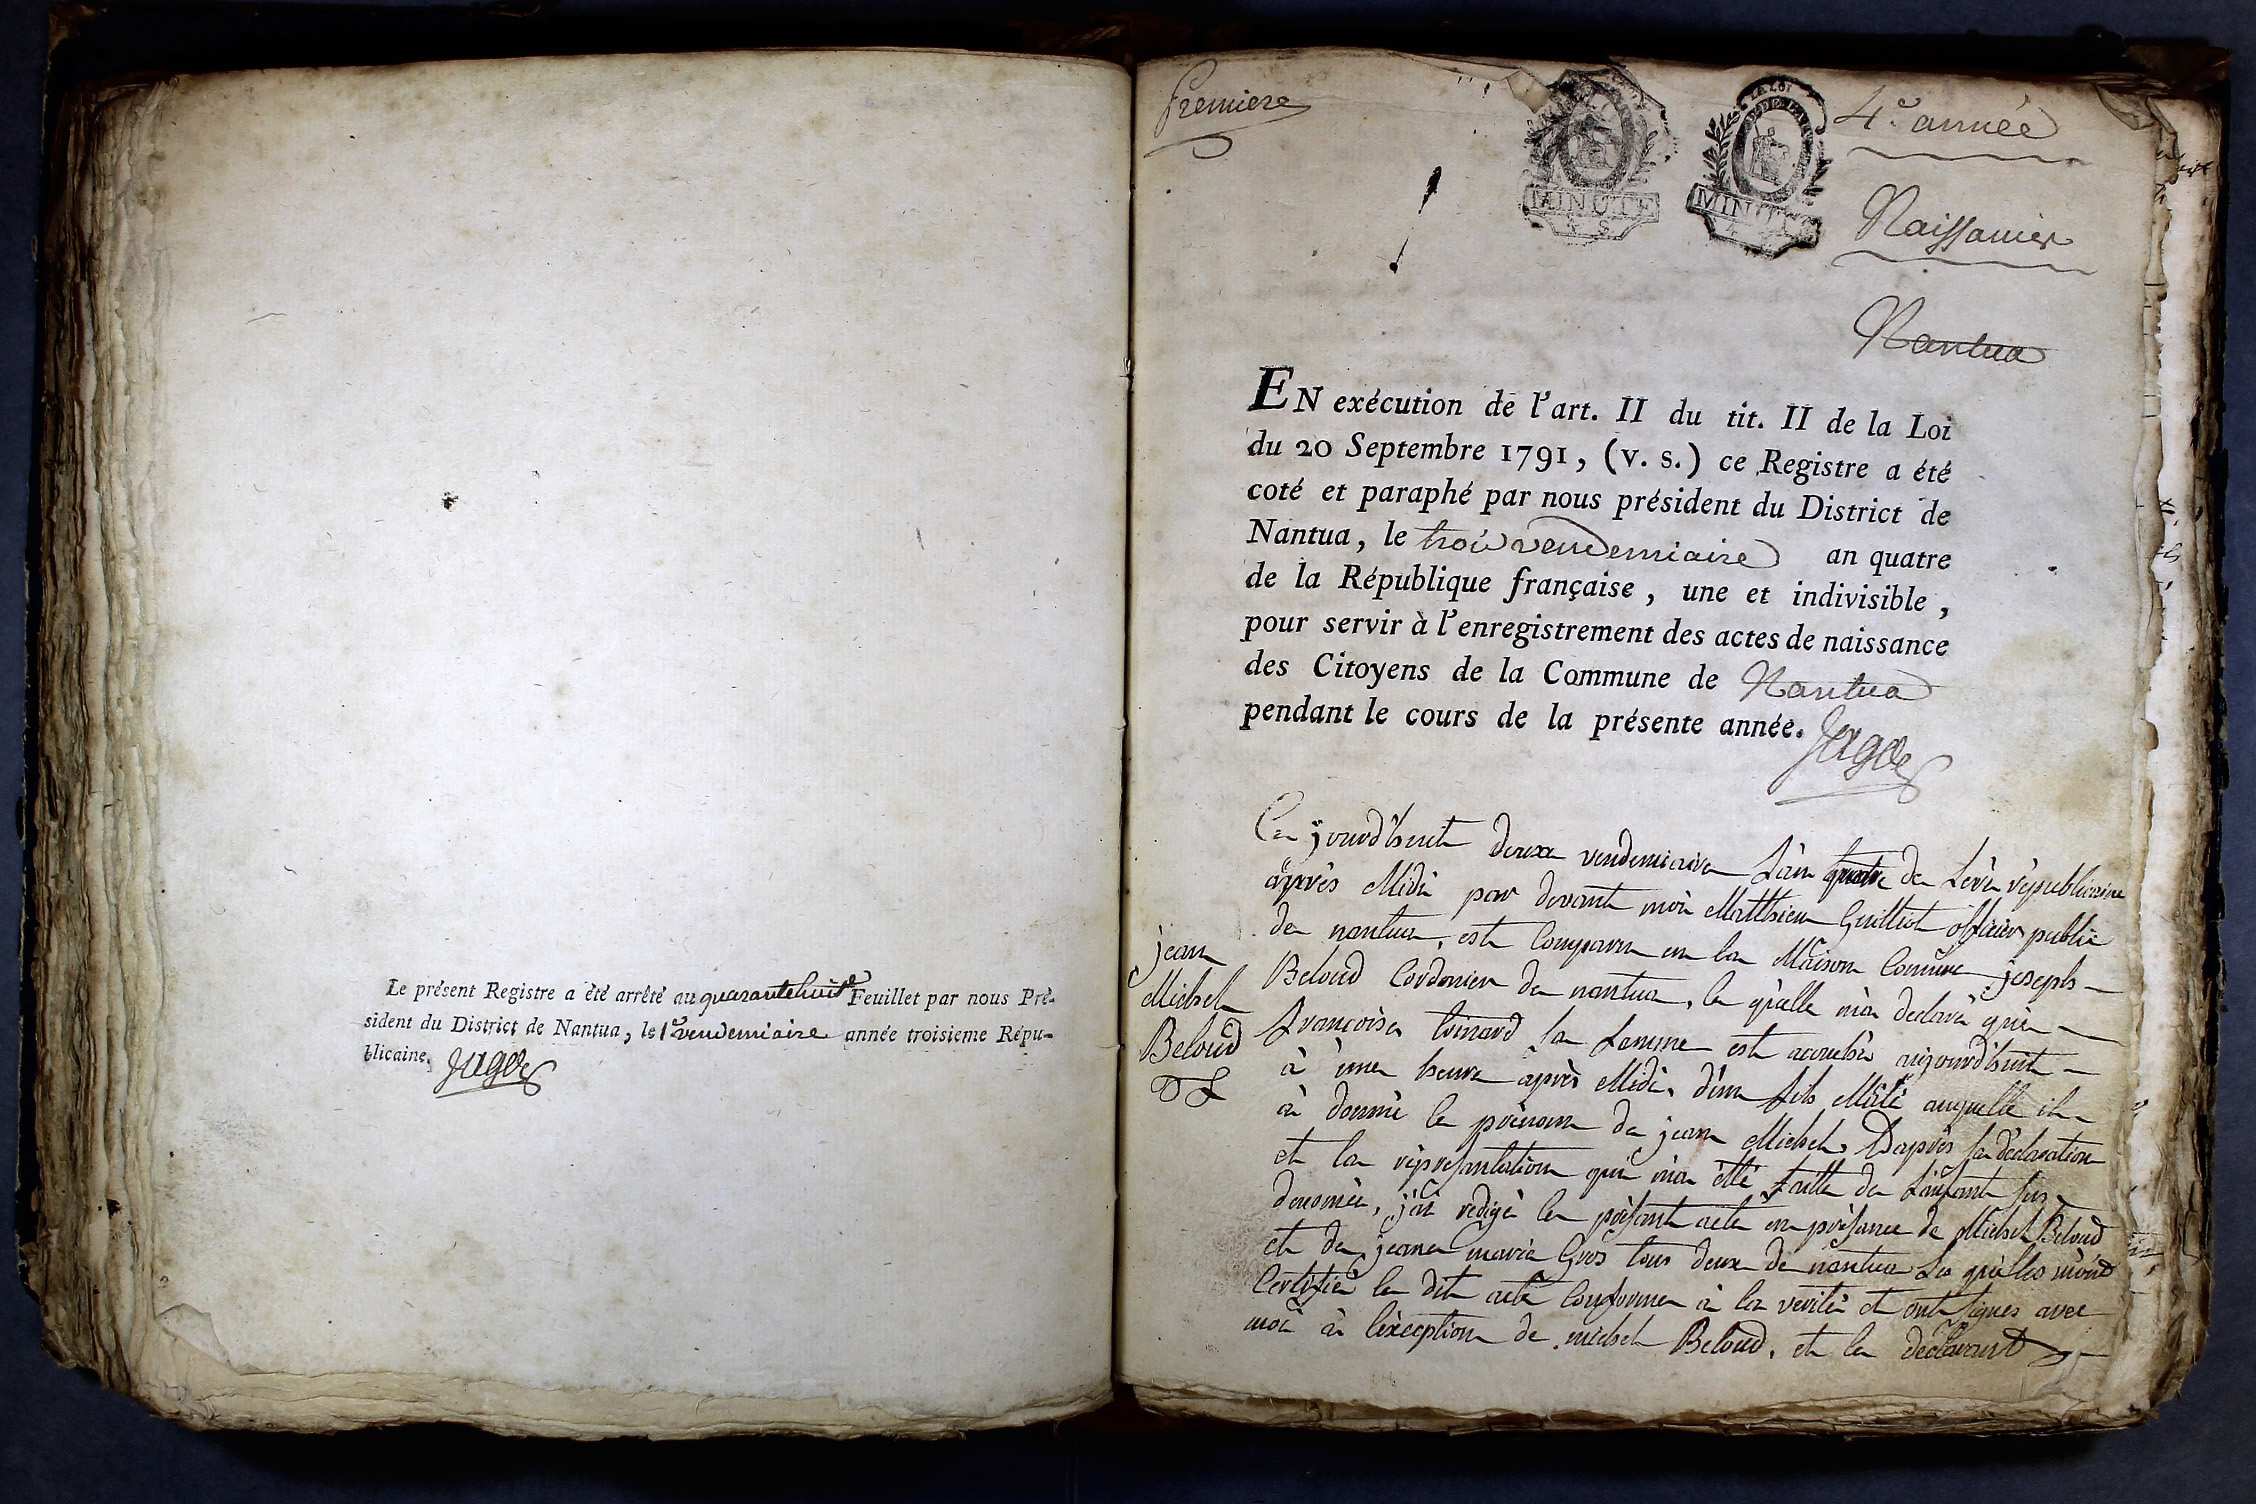 Le présent Registre a été arrêté au quarantehuite Feuillet par nous Pré-
sident du District de Nantua, le 1er vendemiaire année troisieme Répu-
blicaine. Jagot
Premiere
4e année
LA LOI
MINUTE
MINUTE
Naissances
Nantua
EN exécution de l'art. II du tit. II de la Loi
du 20 Septembre 1791, (v. s.) ce Registre a été
coté et paraphé par nous président du District de
Nantua, le trois vendemiaire an quatre
de la République française, une et indivisible,
pour servir à l'enregistrement des actes de naissance
des Citoyens de la Commune de Nantua
pendant le cours de la présente année.
Jagot
Ce jourd'huit deuxe vendemiaire L'an quatre de L'ère république
après Midi par devant moi Matthieu Guilliot officier public
de nantua, est Comparu en la Maison Comune joseph
jean
Michel
Beloud
Beloud Cordonier de nantua, le quelle m'a declaré que
françoise sa famme est acouchée aujourd'huit
à une heure après Midi, d'un fils Male auquelle il
à donné le prénom de jean Michel, D'après sa déclaration
et la représantation qui m'a été faitte de L'anfant sus
denomée, j'ai redigé le présant acte en présance de Michel Beloud
et de jeane marie Gros tous deux de nantua Les quelles m'ont
Certifié le dit acte Conforme à la verité et ont signés avec
moi à l'exception de michel Beloud, et le declarant